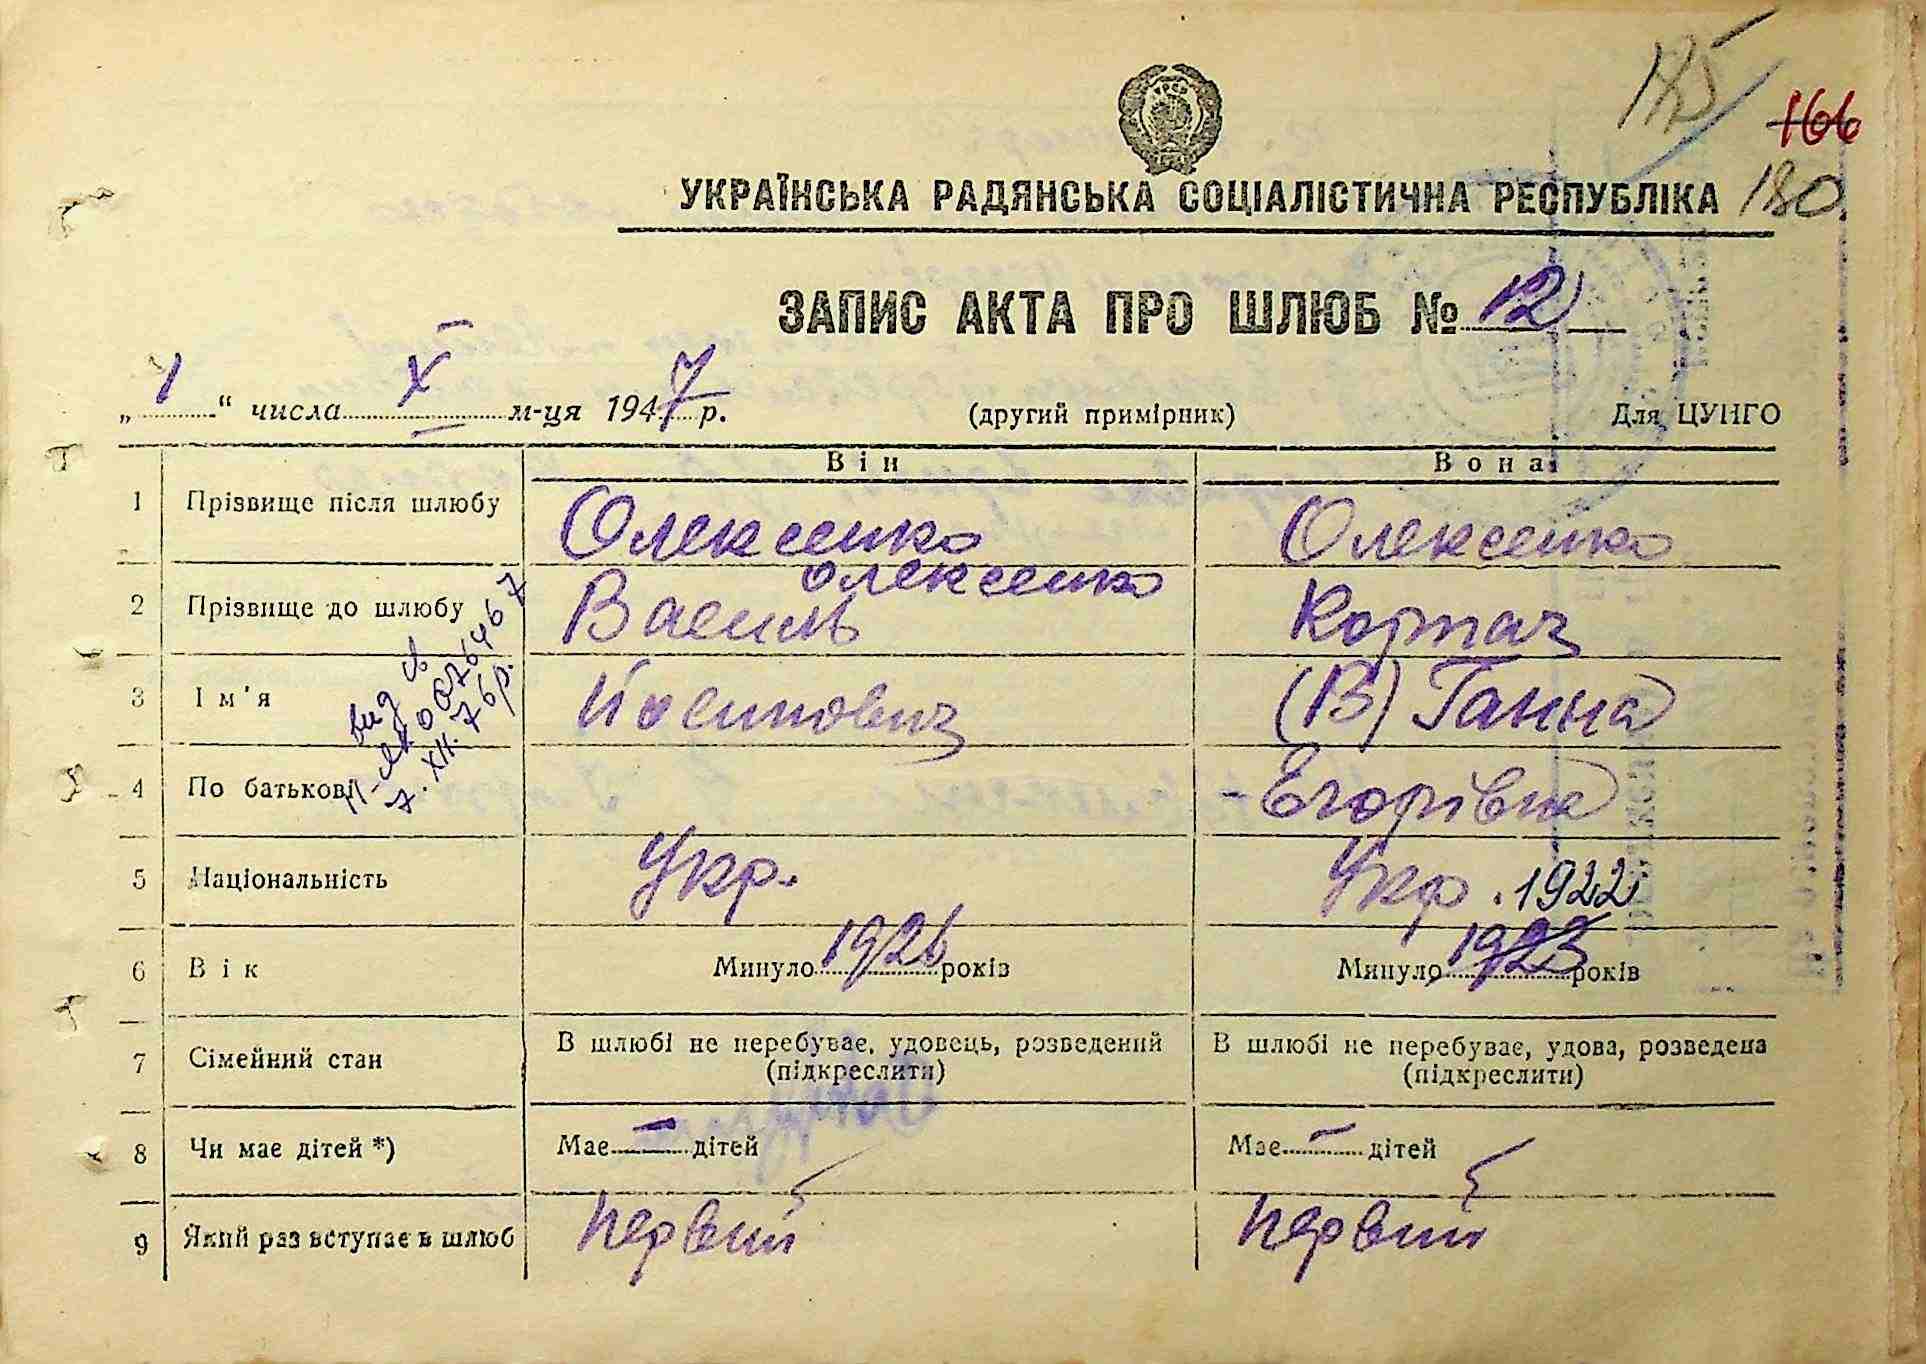 175
166
180
УКРАЇНСЬКА РАДЯНСЬКА СОЦІАЛІСТИЧНА РЕСПУБЛІКА
ЗАПИС АКТА ПРО ШЛЮБ № 12
„1“ числа X м-ця 1947 р. (другий примірник) Для ЦУНГО
Він Вона
1 Прізвище після шлюбу Олексенко Олексенко
Олексенко
2 Прізвище до шлюбу Василь Кортач
3 Ім'я Йосипович (В) Ганна
вид св
II-ЯК 0076467
7.XII.76р.
4 По батькові Егорівна
5 Національність Укр. Укр. 1922
6 Вік Минуло 1926 років Минуло 1923 років
7 Сімейний стан В шлюбі не перебуває, удовець, розведений В шлюбі не перебуває, удова, розведена
(підкреслити) (підкреслити)
8 Чи має дітей *) Має — дітей Має — дітей
9 Який раз вступає в шлюб первий первий